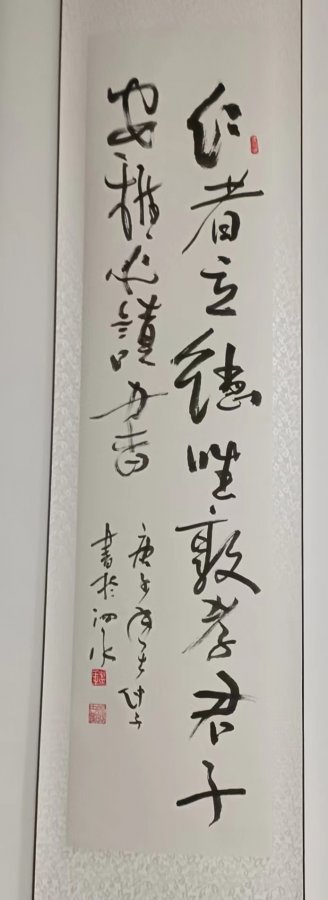 仁者立德唯敦孝君子
安雅必讀书
庚子
書於泗水